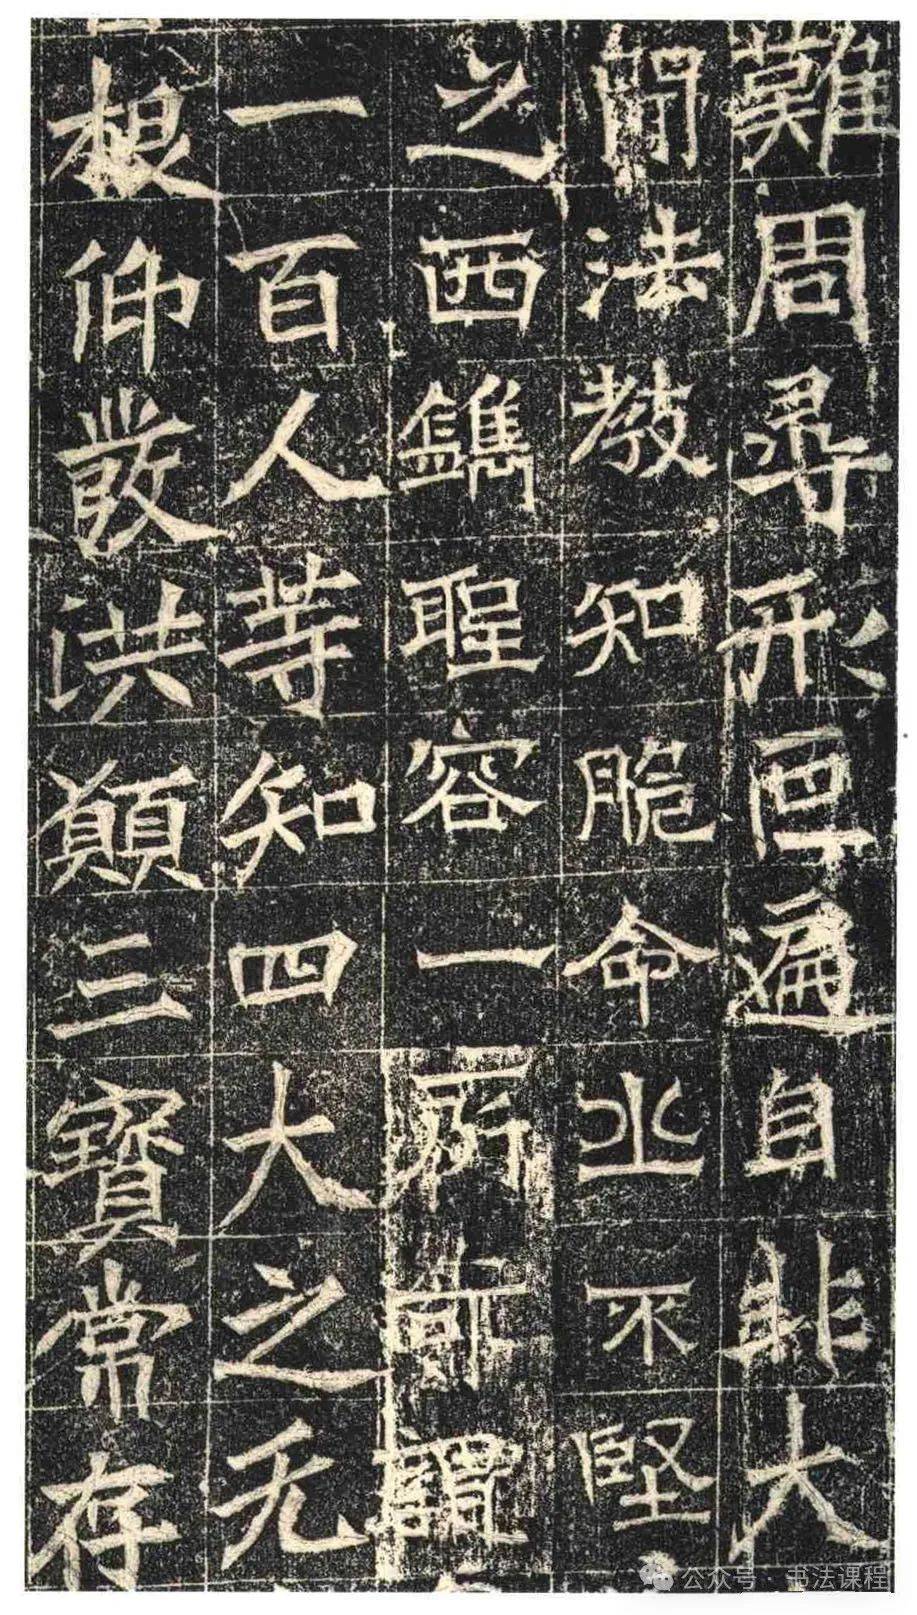 難周尋形色遍自非大
聞法教知脆命之不堅
之西鐫聖容一所謂
一百人等知四大之无
根仰發洪願三寶常存
公众号 · 书法课程